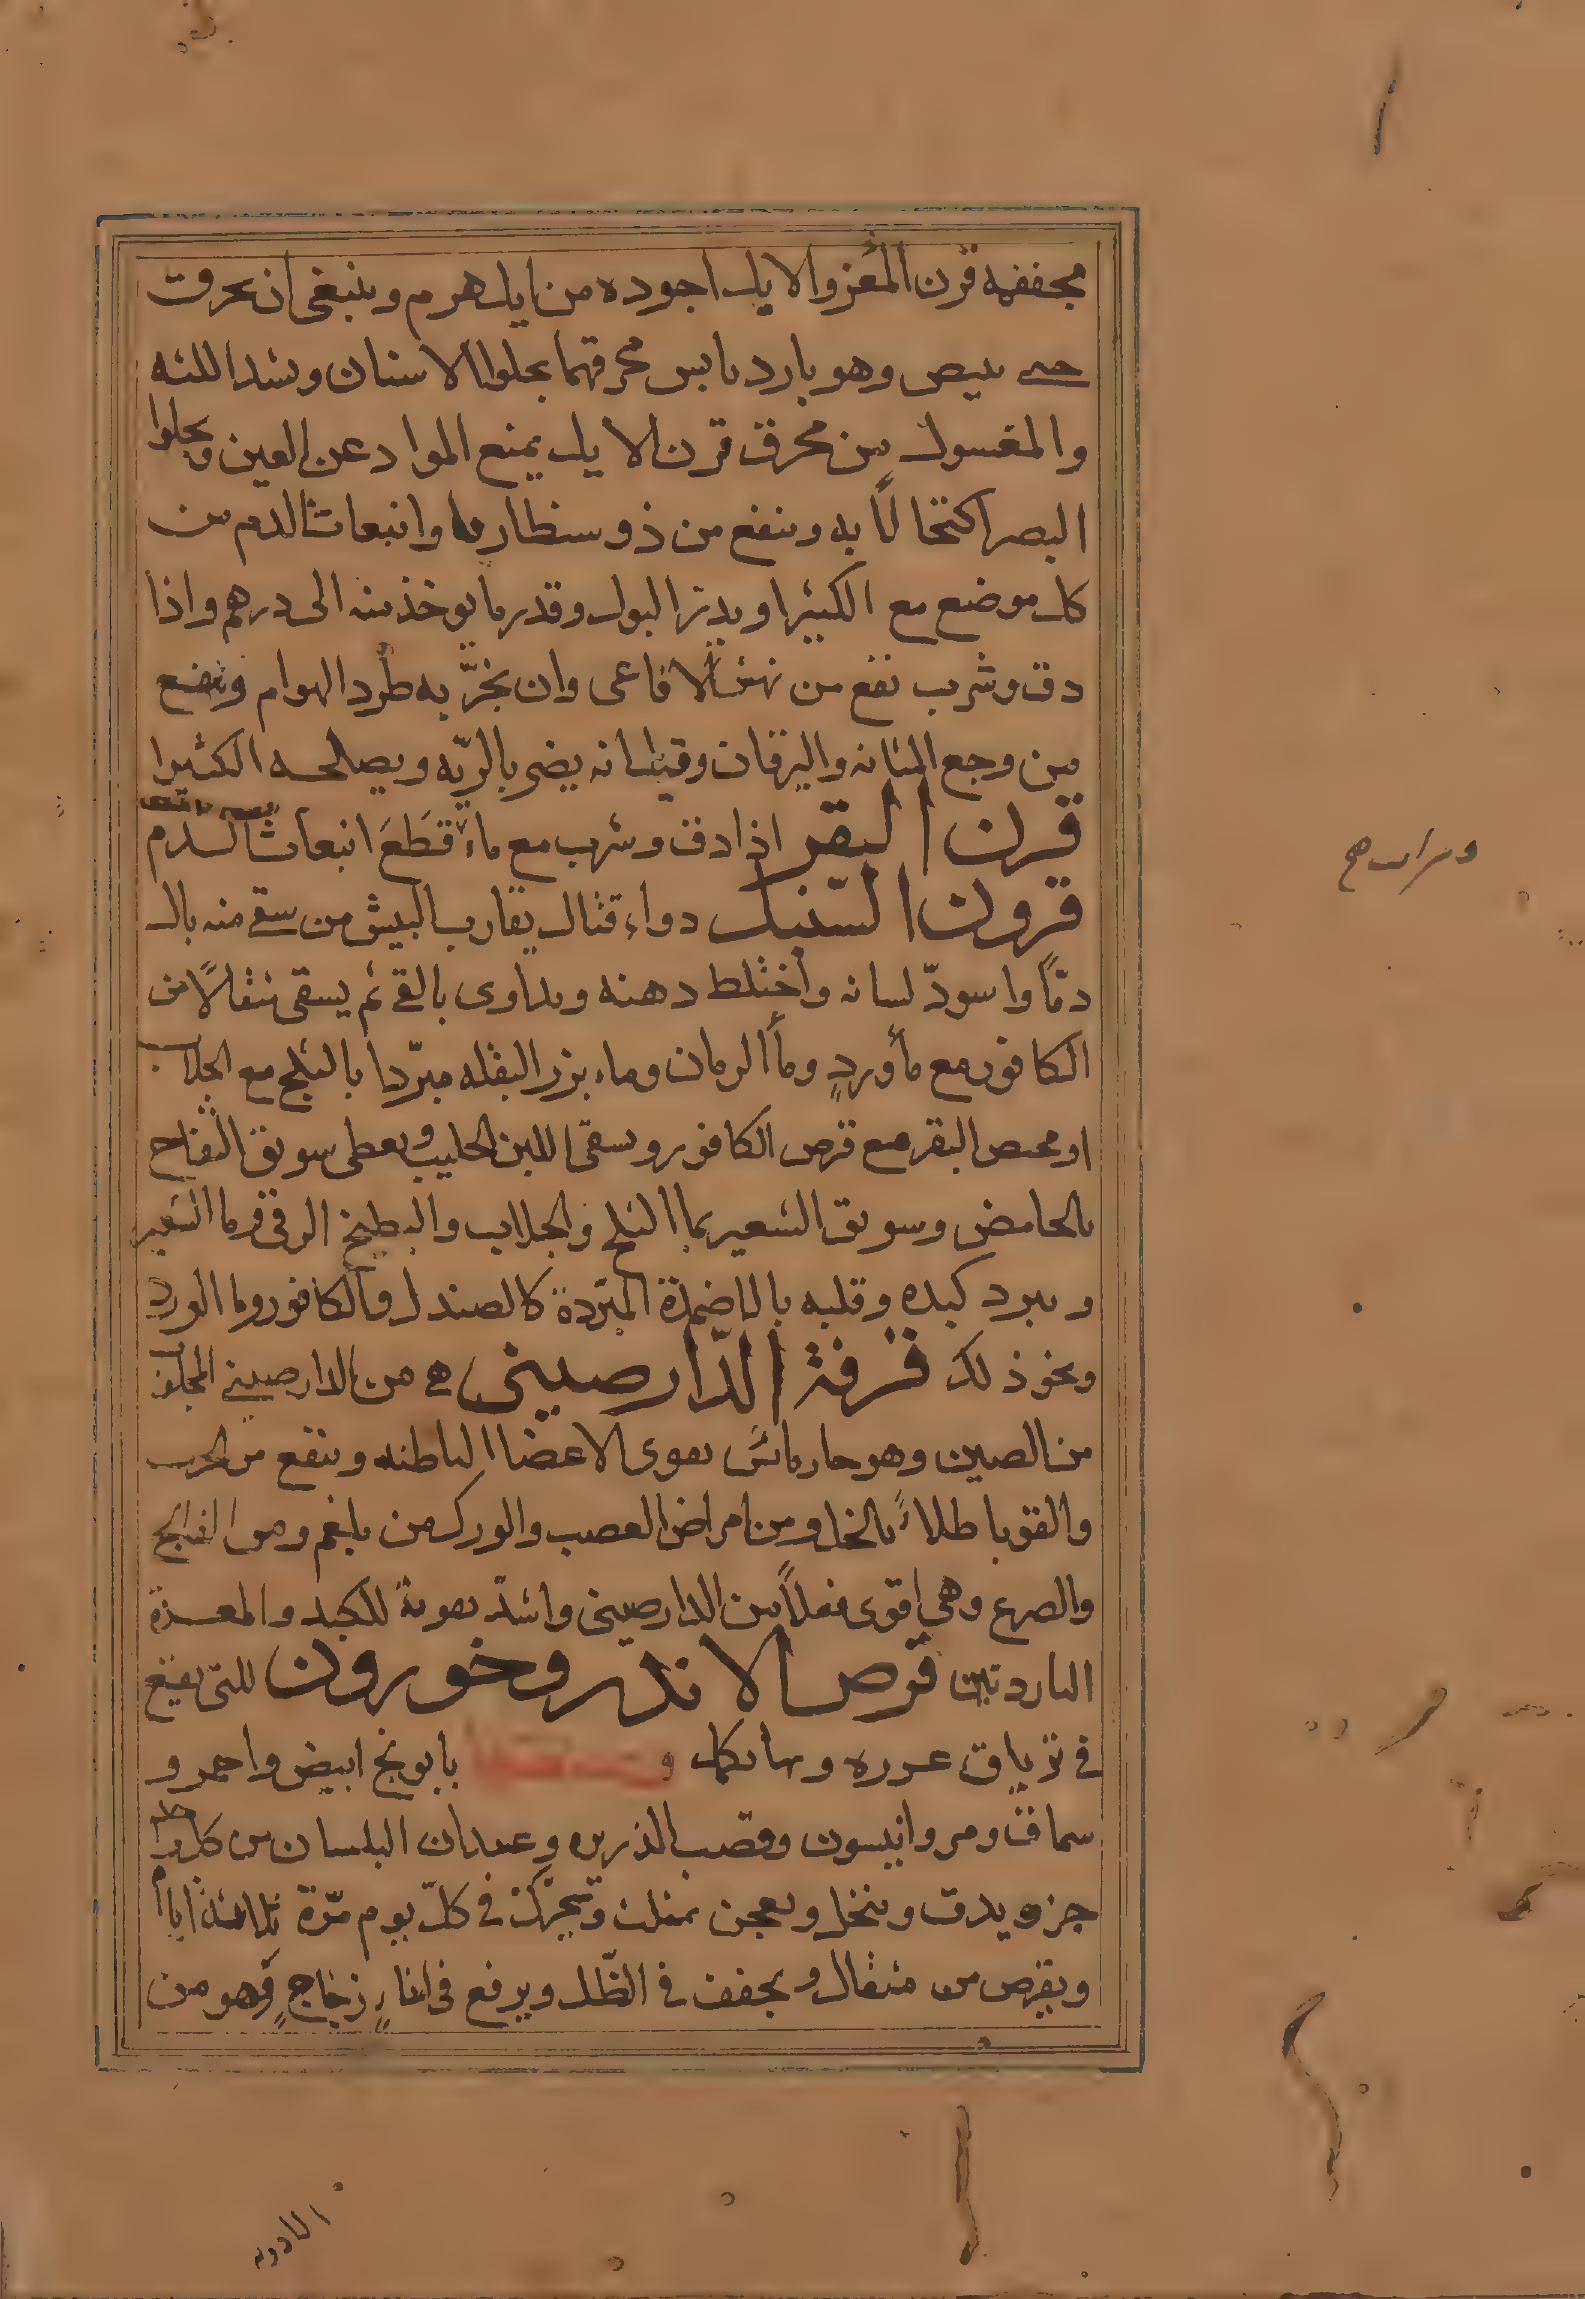 مجففه قرن المعز والايل اجوده من ايل هرم وينبغى ان يحرق
حتى يبيض وهو بارد يابس محرقهما يجلوا الاسنان ويشد اللثه
والمغسول من محرق قرن الايل يمنع المواد عن العين ويجلوا
البصر اكتحالًا به وينفع من ذوسنطاريا وانبعاث الدم من
كل موضع مع الكثيرا ويدر البول وقدر ما يوخذ منه الى درهم واذا
دق وشرب نفع من نهش الافاعى وان بخّر به طرد الهوام وينفع
من وجع المثانه واليرقان وقيل انه يضر بالريّه ويصلحه الكثيرا
قرن البقر اذا دق وشرب مع ماء قَطَعَ انبعاث الدم
قرون السنبل دواء قتال يقارب البيش من سقى منه بال
دمًا واسودّ لسانه واختلط ذهنه ويداوى بالقئ ثم يسقى مثقالًا من
الكافور مع مأ وردٍ ومأ الرمان وماء بزر البقله مبرّدا بالثلج مع الجلاب
او مخيض البقر مع قرص الكافور ويسقى اللبن الحليب ويعطى سويق التفاح
الحامض وسويق الشعير بما الثلج والجلاب والبطيخ الرقى وما الشعير
ويبرد كبده وقلبه بالاضمدة المبرّدة كالصندل والكافور وما الورد
ونحو ذلك قرفة الدّارصينى هى من الدارصينى المجلوب
من الصين وهو حار يابس يقوى الاعضا الباطنه وينفع من الجرب
والقوبا طلاءً بالخل ومن امراض العصب والورك من بلغم ومن الفالج
والصرع وهي اقوى فعلًا من الدارصينى واشدّ تقوية للكبد والمعدة
الباردتين قرص الاندروخورون للتى يقع
فى ترياق بابونج ابيض واحمر و
سماق ومر وانيسون وقصب الذريره وعيدان البلسان من كل واحد
جزو يدق وينخل ويعجن بمثلث ويحرك فى كلّ يوم مرّة ثلاثة ايام
ويقرص من مثقال ويجفف فى الظّل ويرفع فى اناءٍ زجاجٍ فهو من